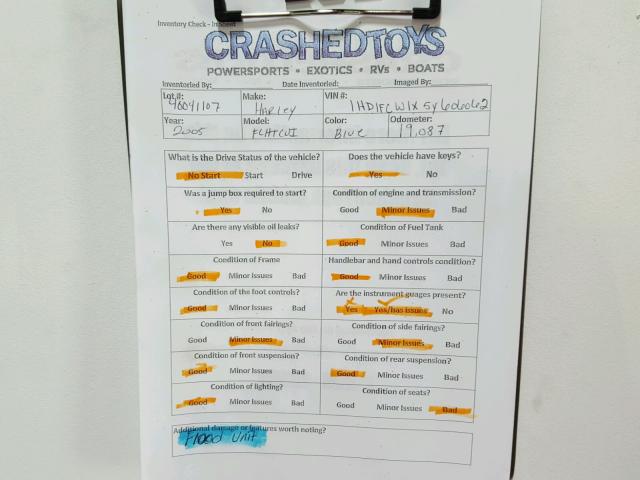 Inventory Check - In
CRASHEDTOYS
POWERSPORTS • EXOTICS • RVs • BOATS
Inventoried By: Date Inventoried: Imaged By:
Lot#: Make: VIN #:
46041107 HARLEY
Year: Model: Color: Odometer:
2005 FLHTCUI Blue 19,087
What is the Drive Status of the vehicle? Does the vehicle have keys?
No Start Start Drive Yes No
Was a jump box required to start? Condition of engine and transmission?
Yes No Good Minor Issues Bad
Are there any visible oil leaks? Condition of Fuel Tank
Yes No Good Minor Issues Bad
Condition of Frame Handlebar and hand controls condition?
Good Minor Issues Bad Good Minor Issues Bad
Condition of the foot controls? Are the instrument guages present?
Good Minor Issues Bad Yes Yes/has issues No
Condition of front fairings? Condition of side fairings?
Good Minor Issues Bad Good Minor Issues Bad
Condition of front suspension? Condition of rear suspension?
Good Minor Issues Bad Good Minor Issues Bad
Condition of lighting? Condition of seats?
Good Minor Issues Bad Good Minor Issues Bad
Additional damage or features worth noting?
Flood Unit